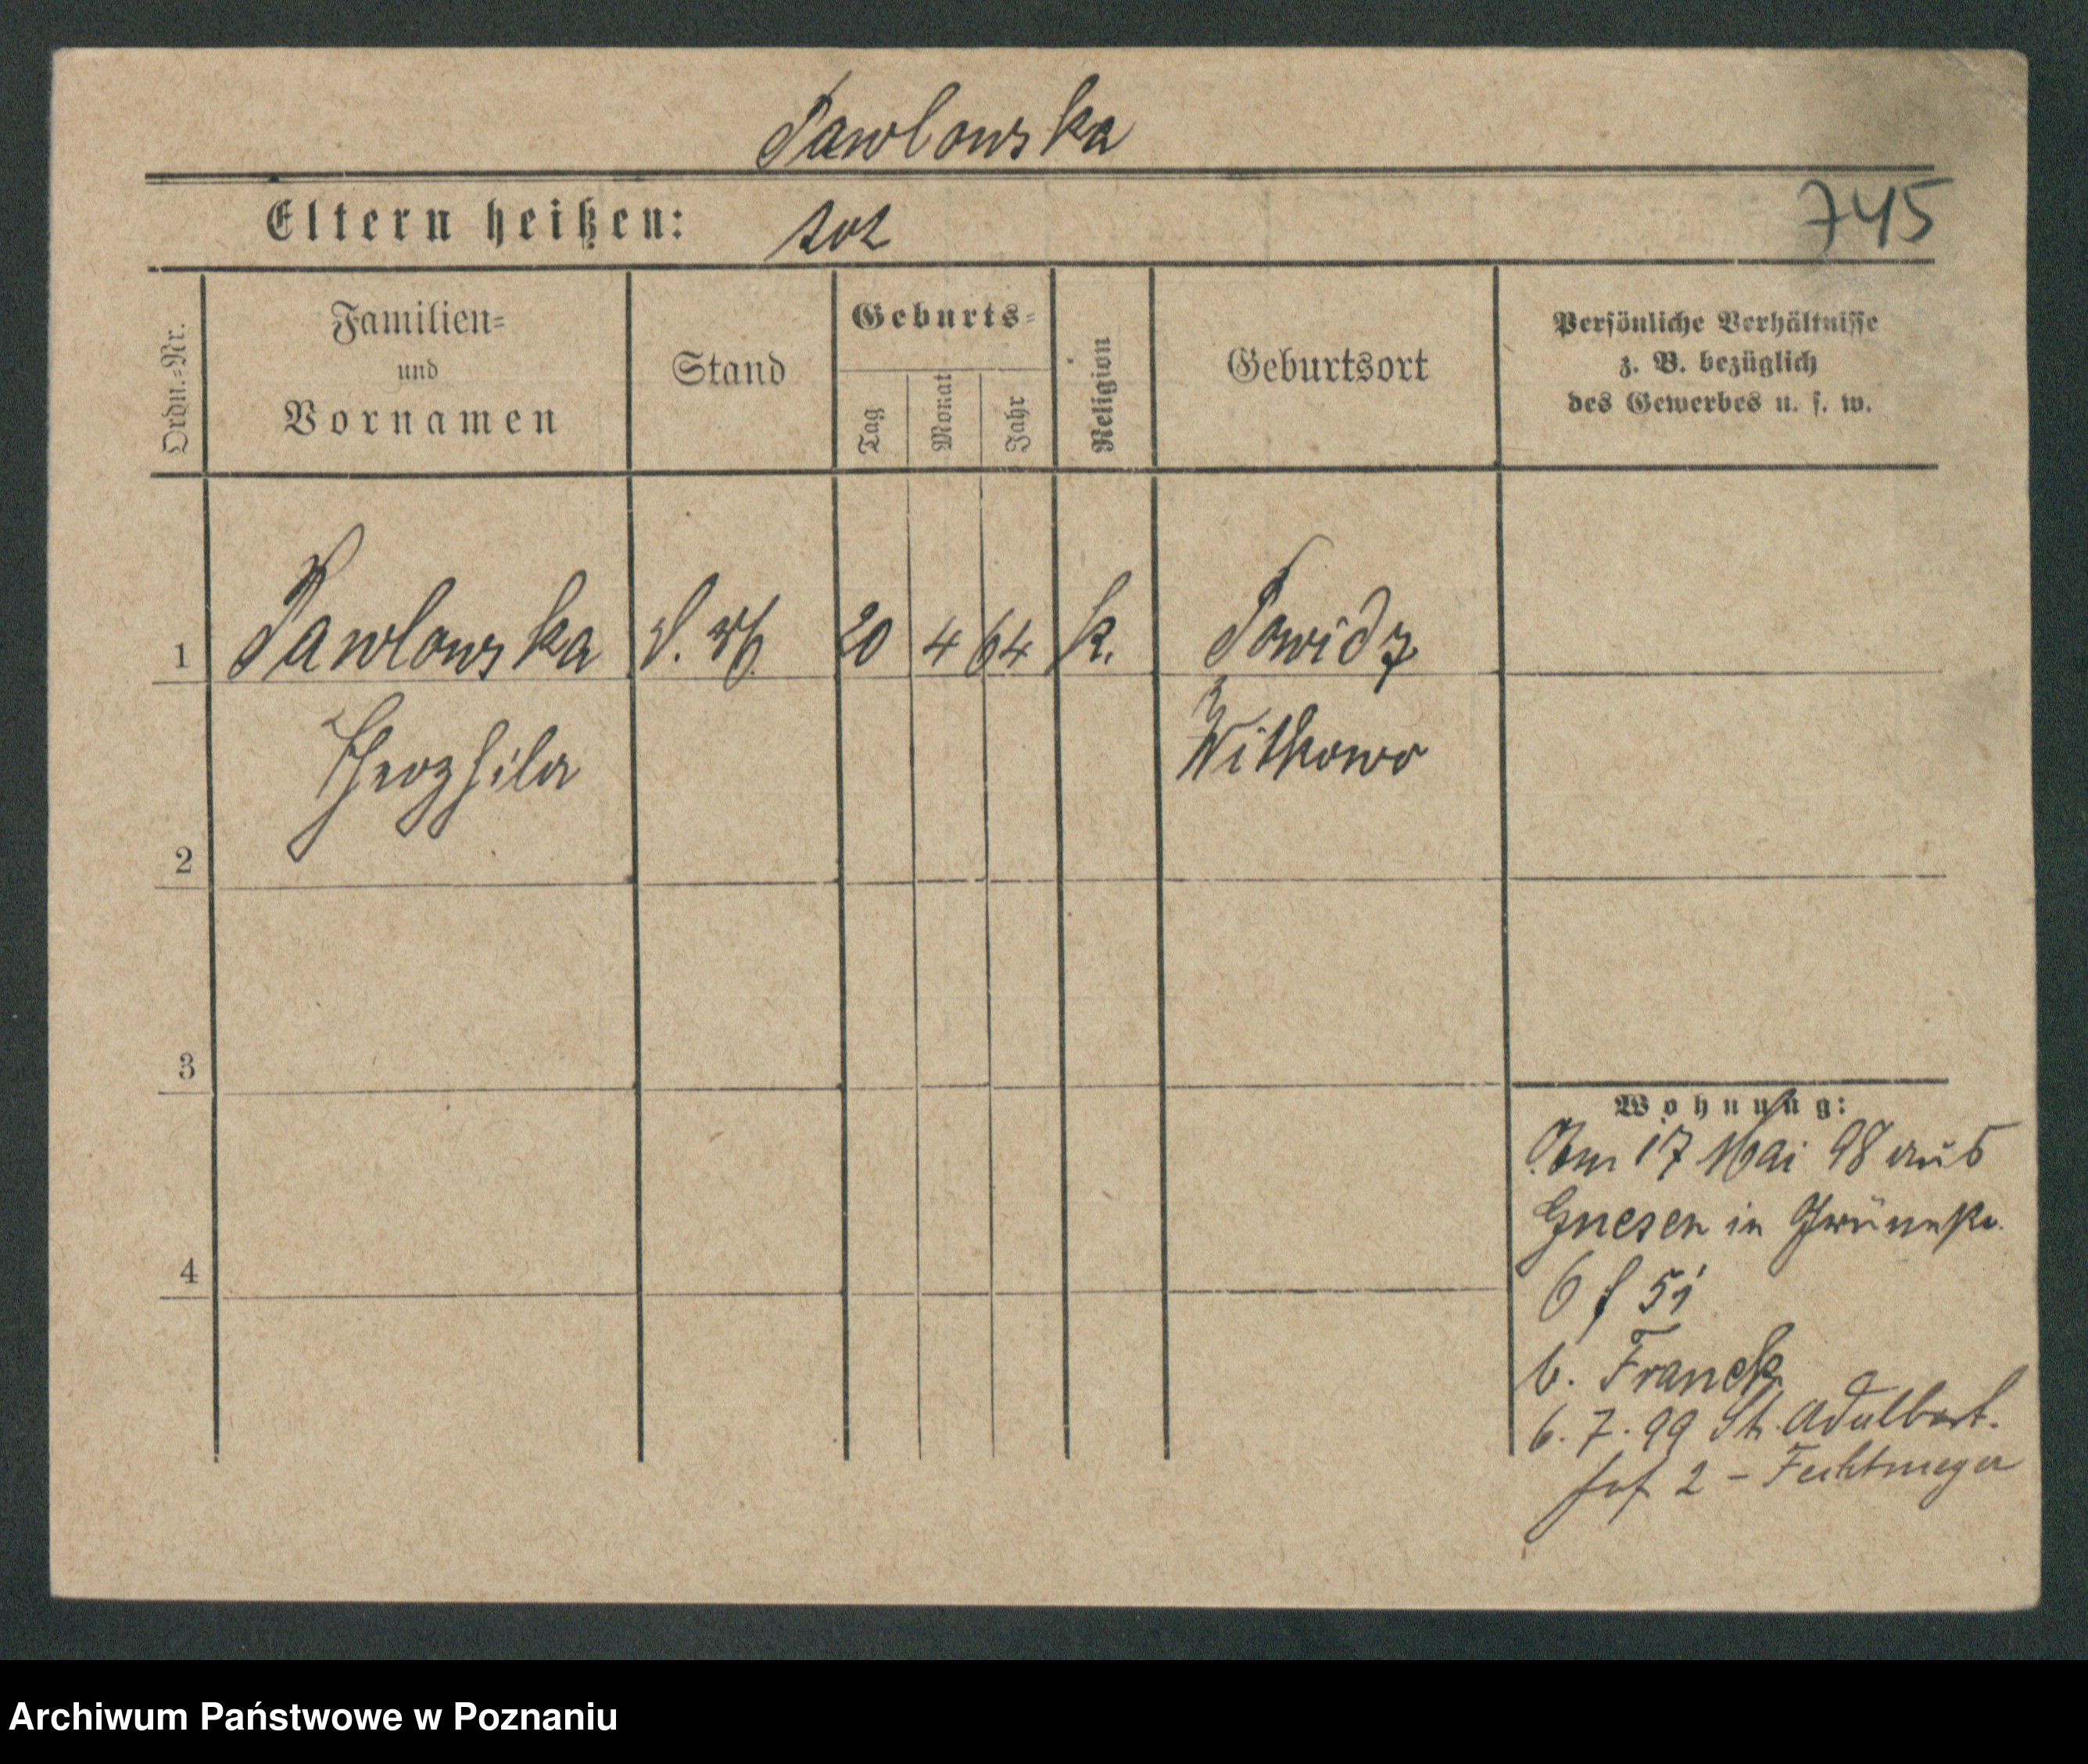 Pawlowska
Eltern heißen: tot
745
Ordn.-Nr.
Familien-
und
Vornamen
Stand
Geburts-
Tag
Monat
Jahr
Religion
Geburtsort
Persönliche Verhältnisse
z. B. bezüglich
des Gewerbes u. s. w.
1 Pawlowska 20 4 64 k. Powidz
Theophila Witkowo
2
3
4
Wohnung:
Am 17 Mai 98 aus
Gnesen in Grünestr.
6
b. Franck
6. 7. 99 St. Adalbert.
2 - Fechtmeyer
Archiwum Państwowe w Poznaniu